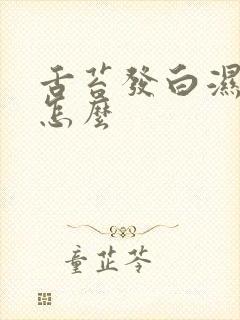 舌苔發白濕
怎麼
童芷苓